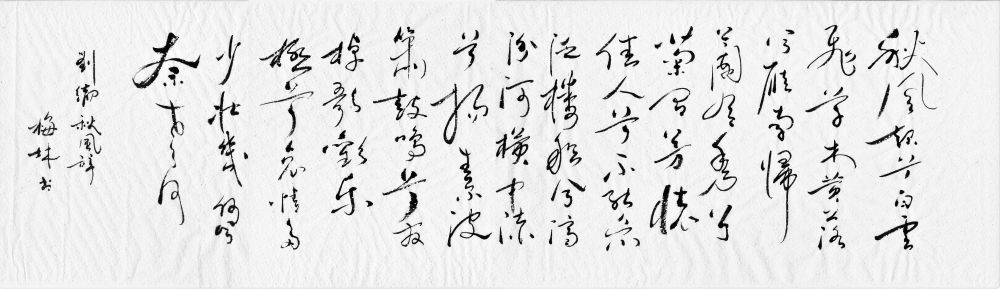 秋風起兮白雲
飛草木黃落
兮雁南歸
蘭有秀兮
菊有芳懷
佳人兮不能忘
泛樓船兮濟
汾河橫中流
兮揚素波
簫鼓鳴兮發
棹歌歡樂
極兮哀情多
少壯幾時兮
奈老何
劉徹秋風辭
梅林书